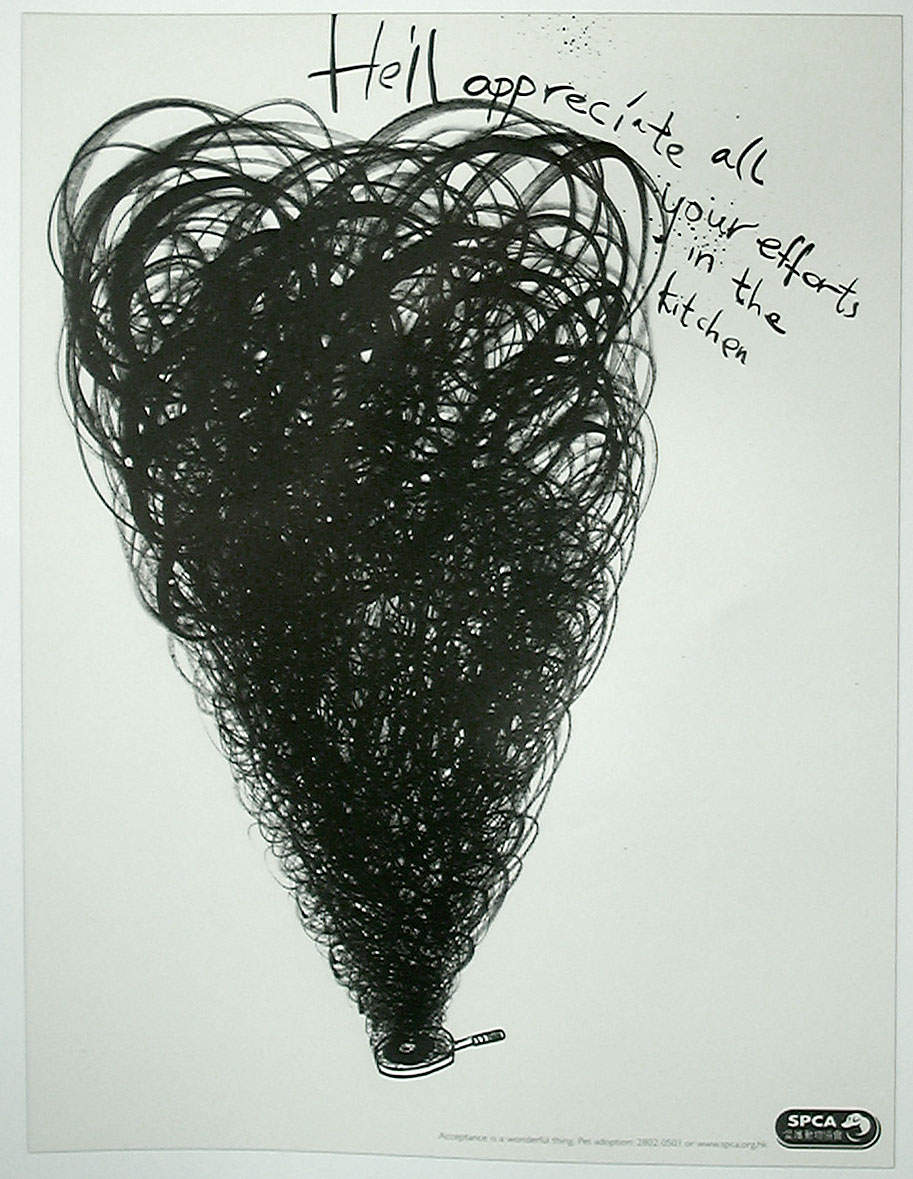 He'll appreciate all
your efforts
in the
kitchen
Acceptance is a wonderful thing. Pet adoption: 2802 0501 or www.spca.org.hk
SPCA
愛護動物協會